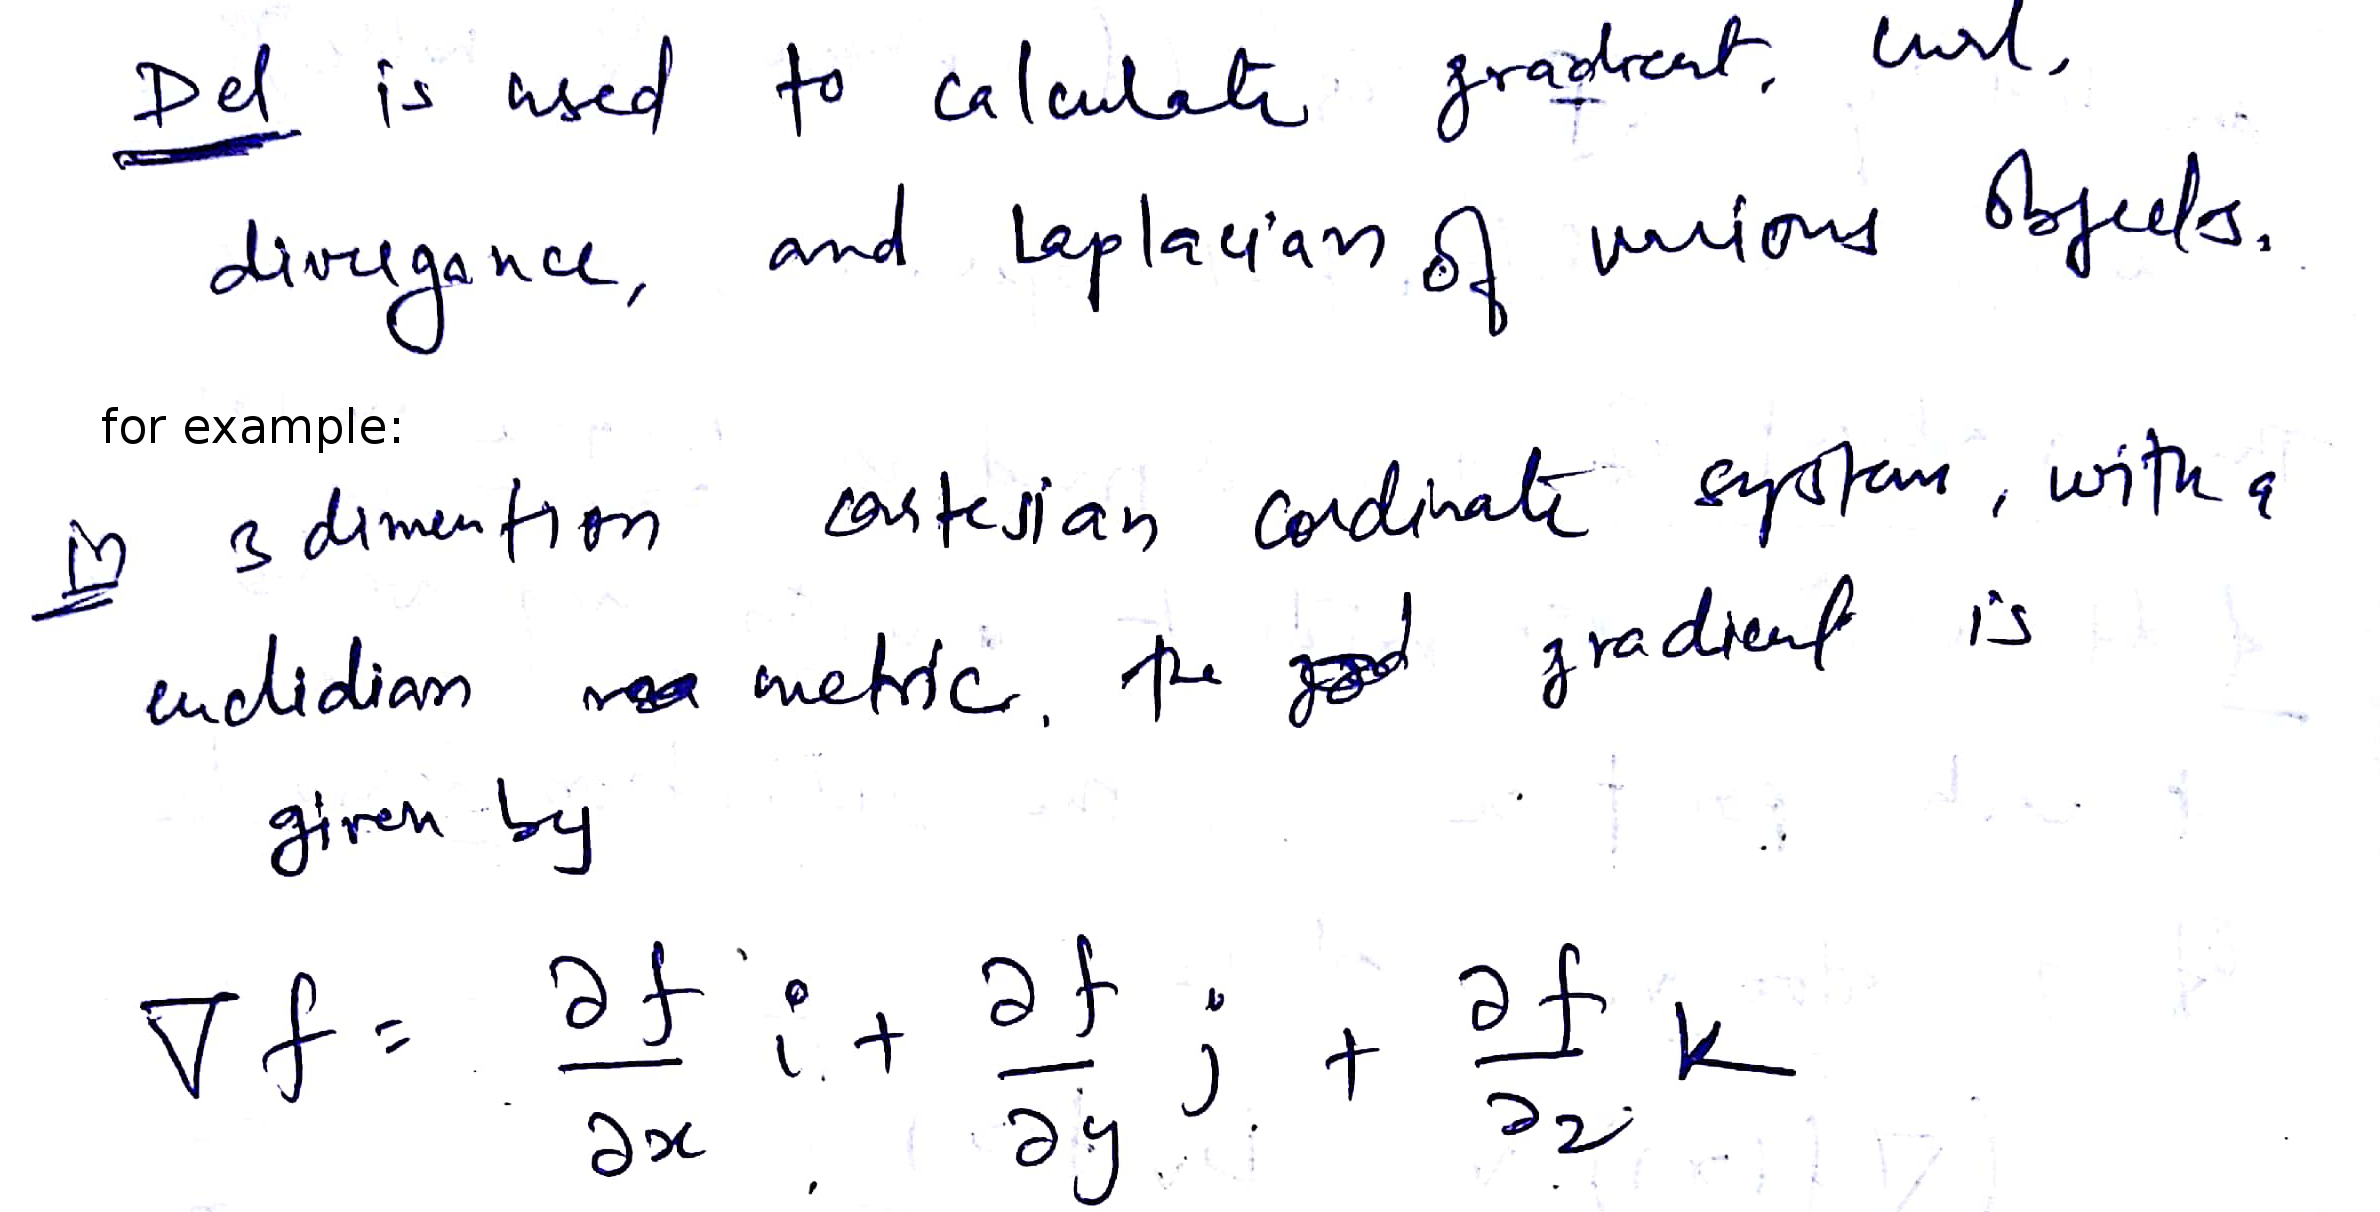 Del is used to calculate gradient, curl,
divergance, and Laplacian of various objects.
for example:
in 3 dimention cartesian cordinate system, with a
euclidian metric, the gradient is
given by
∇f = ∂f/∂x i + ∂f/∂y j + ∂f/∂z k